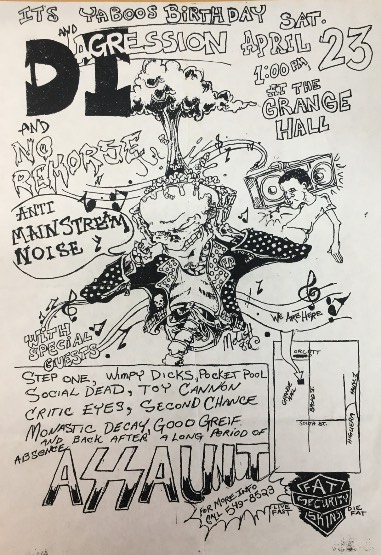 ITS YABOOS BIRTHDAY SAT.
AND AGRESSION APRIL 23
DI
1:00 PM
AT THE
GRANGE
HALL
AND
NO
REMORSE
ANTI
MAINSTREAM
NOISE!
WITH
SPECIAL
GUESTS
WE ARE HERE
STEP ONE, WIMPY DICKS, POCKET POOL
SOCIAL DEAD, TOY CANNON
CRITIC EYES, SECOND CHANCE
MONASTIC DECAY, GOOD GREIF
AND BACK AFTER A LONG PERIOD OF
ABSENCE
ASSAULT
ORCUTT
GRANGE
HALL
BROAD ST.
SOUTH ST.
FOR MORE INFO
CALL 549-8523
LIVE
FAST
FAT
SECURITY
SKINS
DIE
FAT